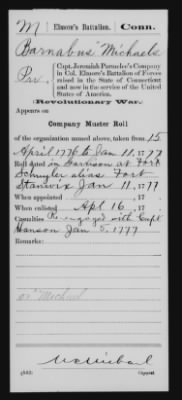 M | Elmore's Battalion, | Conn.
Barnabus Michaels
Pvt., Capt. Jeremiah Parmelee's Company
in Col. Elmore's Battalion of Forces
raised in the State of Connecticut
and now in the service of the United
States of America.
Revolutionary War.
Appears on
Company Muster Roll
of the organization named above, taken from 15
April 1776 to Jan 11, 1777
Roll dated in Garrison at Fort
Schuyler alias Fort
Stanwix Jan 11, 1777
When appointed , 17 .
When enlisted Apl 16 , 17 .
Casualties Re engaged with Capt
Hanson Jan 5, 1777
Remarks:
or Michael
Copyist.